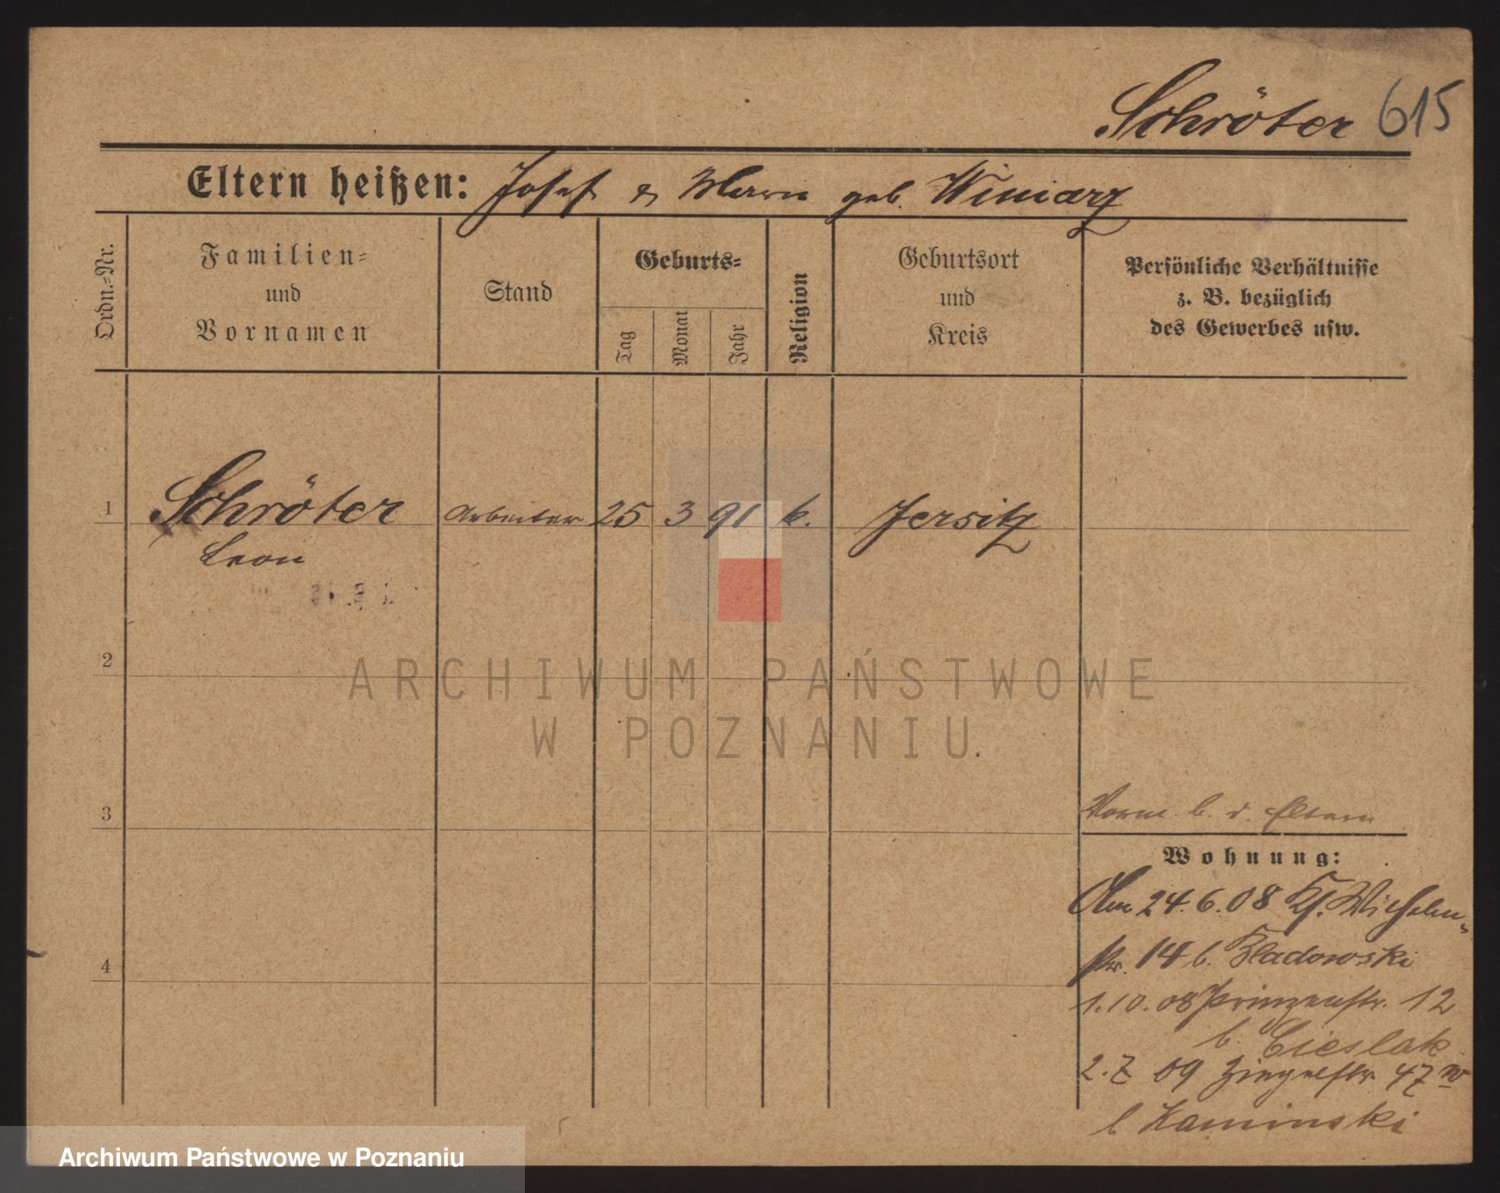 Schröter 615
Eltern heißen: Josef & Marie geb. Winiarz
Ordn.-Nr.
Familien-
und
Vornamen
Stand
Geburts-
Tag
Monat
Jahr
Religion
Geburtsort
und
Kreis
Persönliche Verhältnisse
z. B. bezüglich
des Gewerbes usw.
1 Schröter Arbeiter 25 3 91 k. Jersitz
Leon
2
ARCHIWUM PAŃSTWOWE
W POZNANIU
3
b. d. Eltern
Wohnung:
Am 24.6.08 Kl. Wilhelm-
str. 14 b.
4
1.10.08 Prinzenstr. 12
b. Cieslak
2.7 09 47
b Kaminski
Archiwum Państwowe w Poznaniu